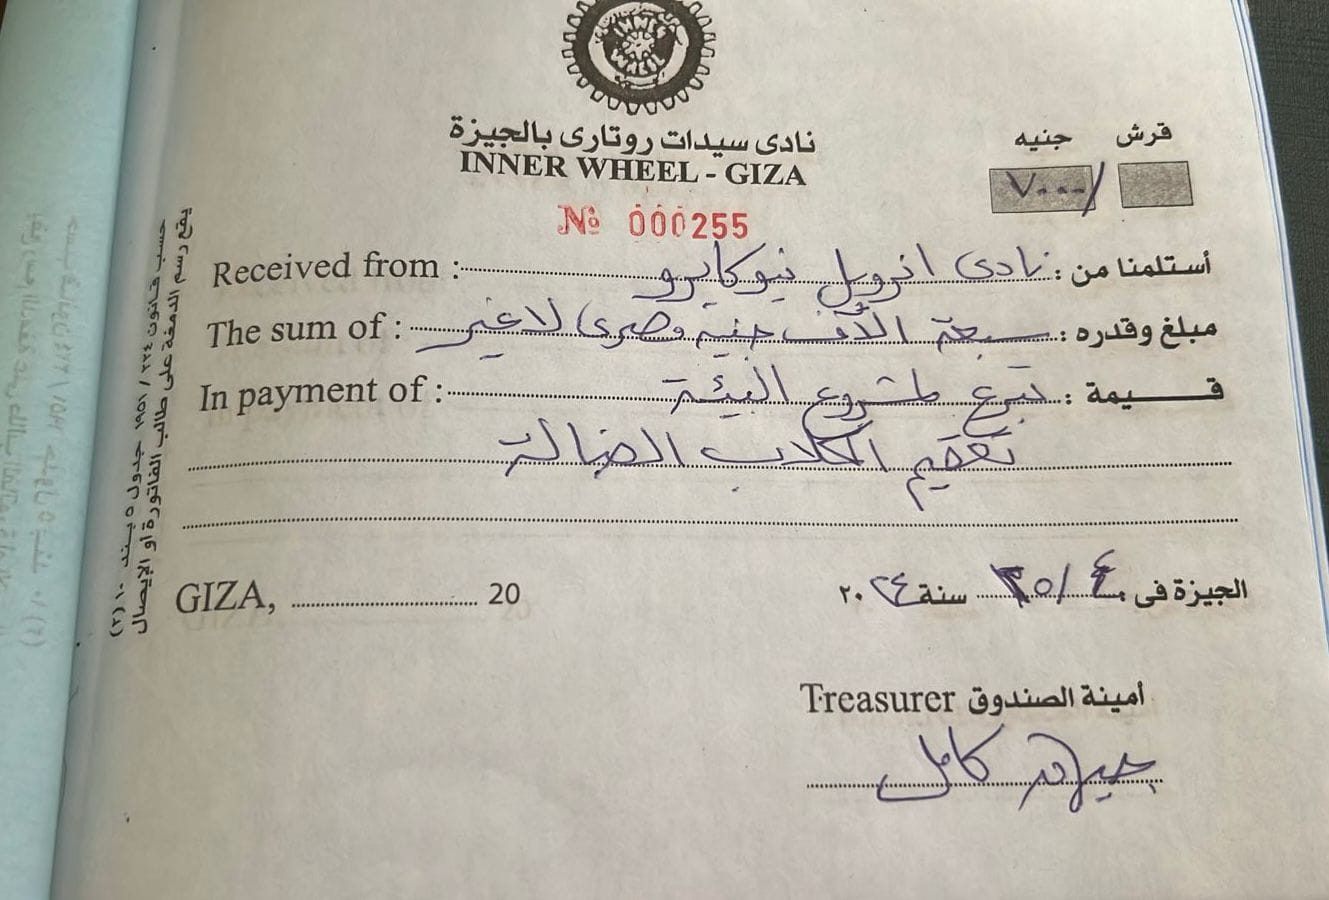 INNER WHEEL
نادى سيدات روتارى بالجيزة
INNER WHEEL - GIZA
قرش جنيه
٧٠٠٠/
№ 000255
Received from : نادى انرويل نيوكايرو أستلمنا من :
The sum of : سبعة الآف جنيه مصرى لا غير مبلغ وقدره :
In payment of : تبرع لمشروع البيئة قيمة :
تعقيم الكلاب الضالة
GIZA, 20
الجيزة فى ٢٥/٤ سنة ٢٠٢٤
Treasurer أمينة الصندوق
كامل
يقع رسم الدمغة على طالب الفاتورة أو الإيصال
حسب قانون ٢٢٤ / ١٩٥١ جدول ٥ بند ١٠ (٢)